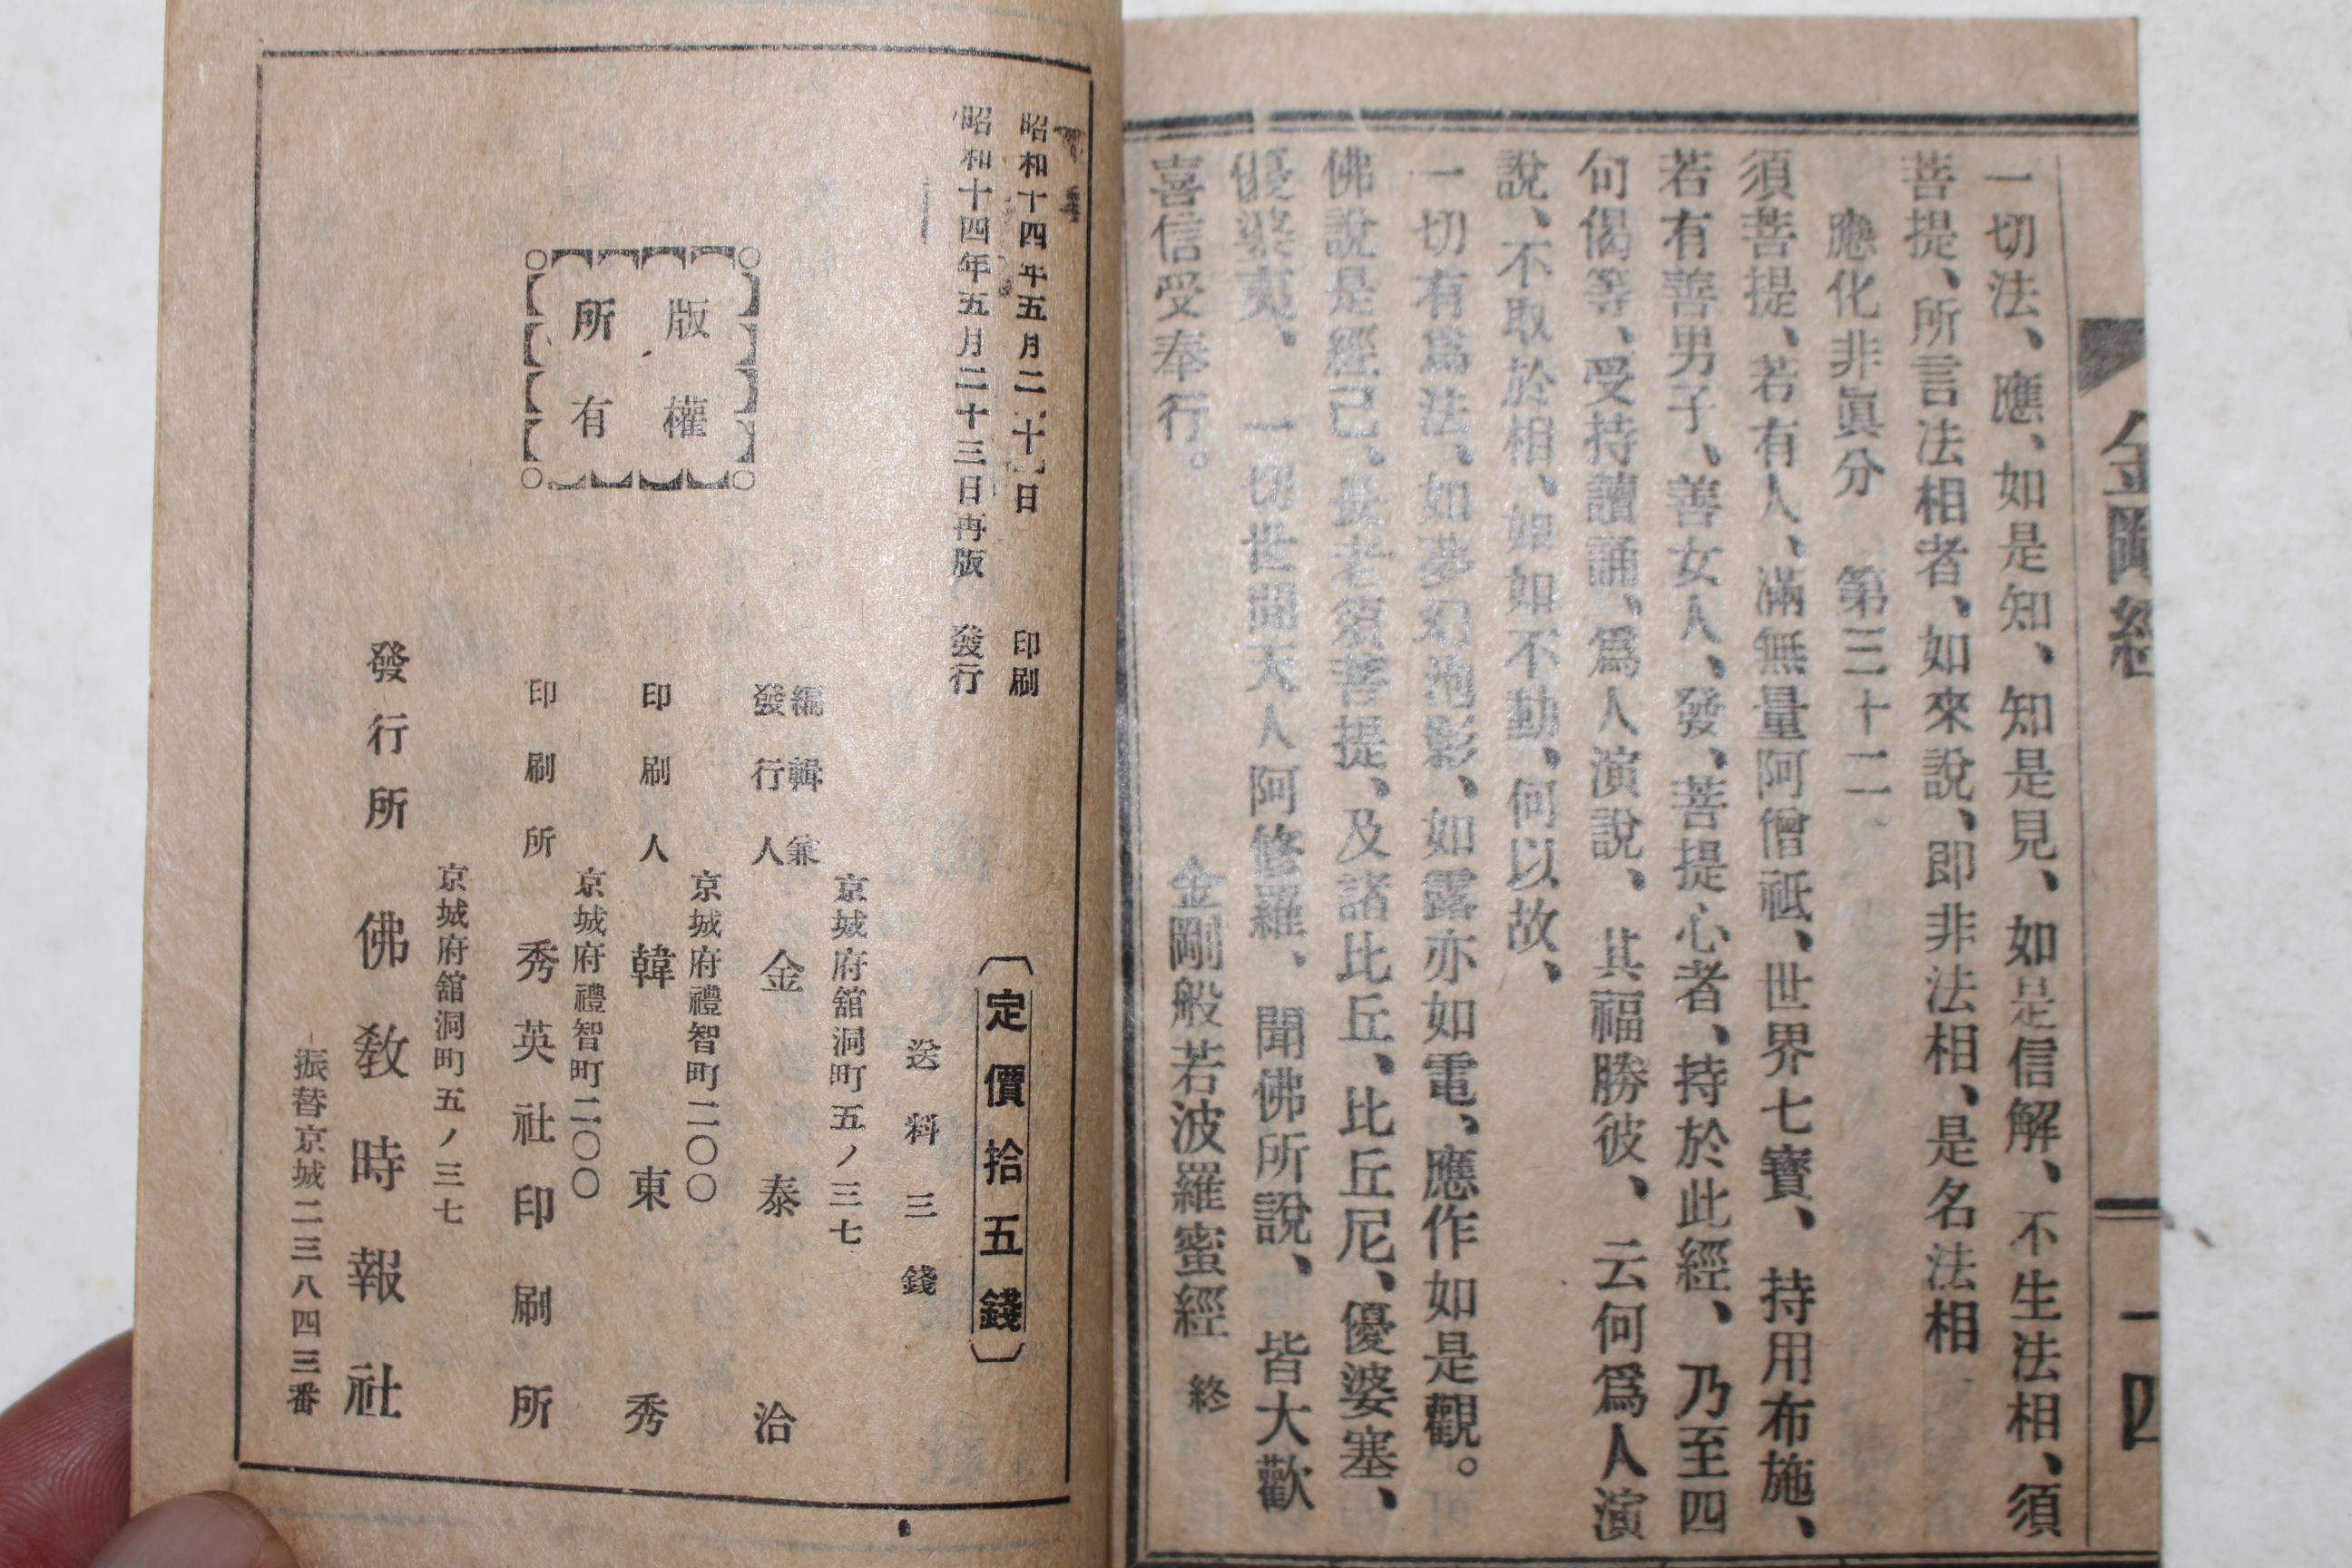 金剛經
一四
一切法、應、如是知、知是見、如是信解、不生法相、須
菩提、所言法相者、如來說、即非法相、是名法相
應化非眞分　第三十二
須菩提、若有人、滿無量阿僧祇、世界七寶、持用布施、
若有善男子、善女人、發、菩提心者、持於此經、乃至四
句偈等、受持讀誦、爲人演說、其福勝彼、云何爲人演
說、不取於相、如如不動、何以故、
一切有爲法、如夢幻泡影、如露亦如電、應作如是觀。
佛說是經已、長老須菩提、及諸比丘、比丘尼、優婆塞、
優婆夷、一切世間天人阿修羅、聞佛所說、皆大歡
喜信受奉行。
金剛般若波羅蜜經　終
昭和十四年五月二十日　印刷
昭和十四年五月二十三日再版　發行
版權
所有
〔定價拾五錢〕
送料三錢
京城府舘洞町五ノ三七
編輯兼
發行人　金泰洽
京城府禮智町二〇〇
印刷人　韓東秀
京城府禮智町二〇〇
印刷所　秀英社印刷所
京城府舘洞町五ノ三七
發行所　佛敎時報社
振替京城二三八四三番